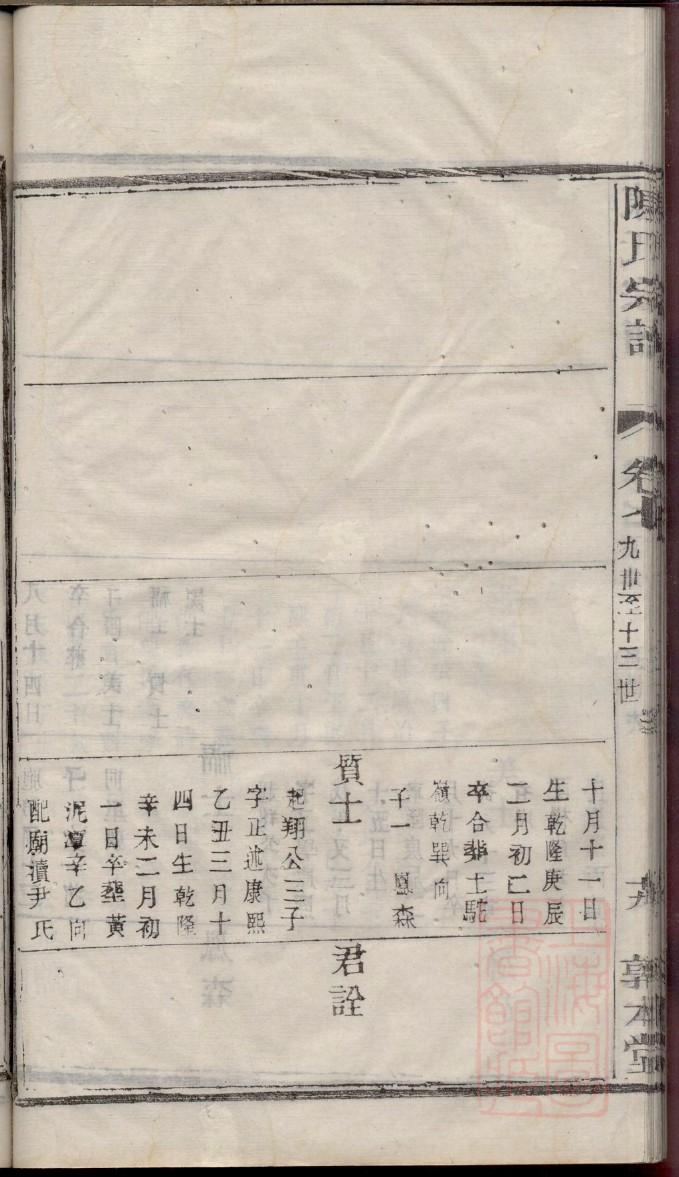 陳氏宗譜
卷
九世至十三世
敦本堂
十月十一日
生乾隆庚辰
二月初二日
卒合葬土駝
嶺乾巽向
子一 鳳森
質士
起翔公三子
字正述康熙
乙丑三月十
四日生乾隆
辛未二月初
一日卒塟黃
泥潭辛乙向
配廟瀆尹氏
君詮